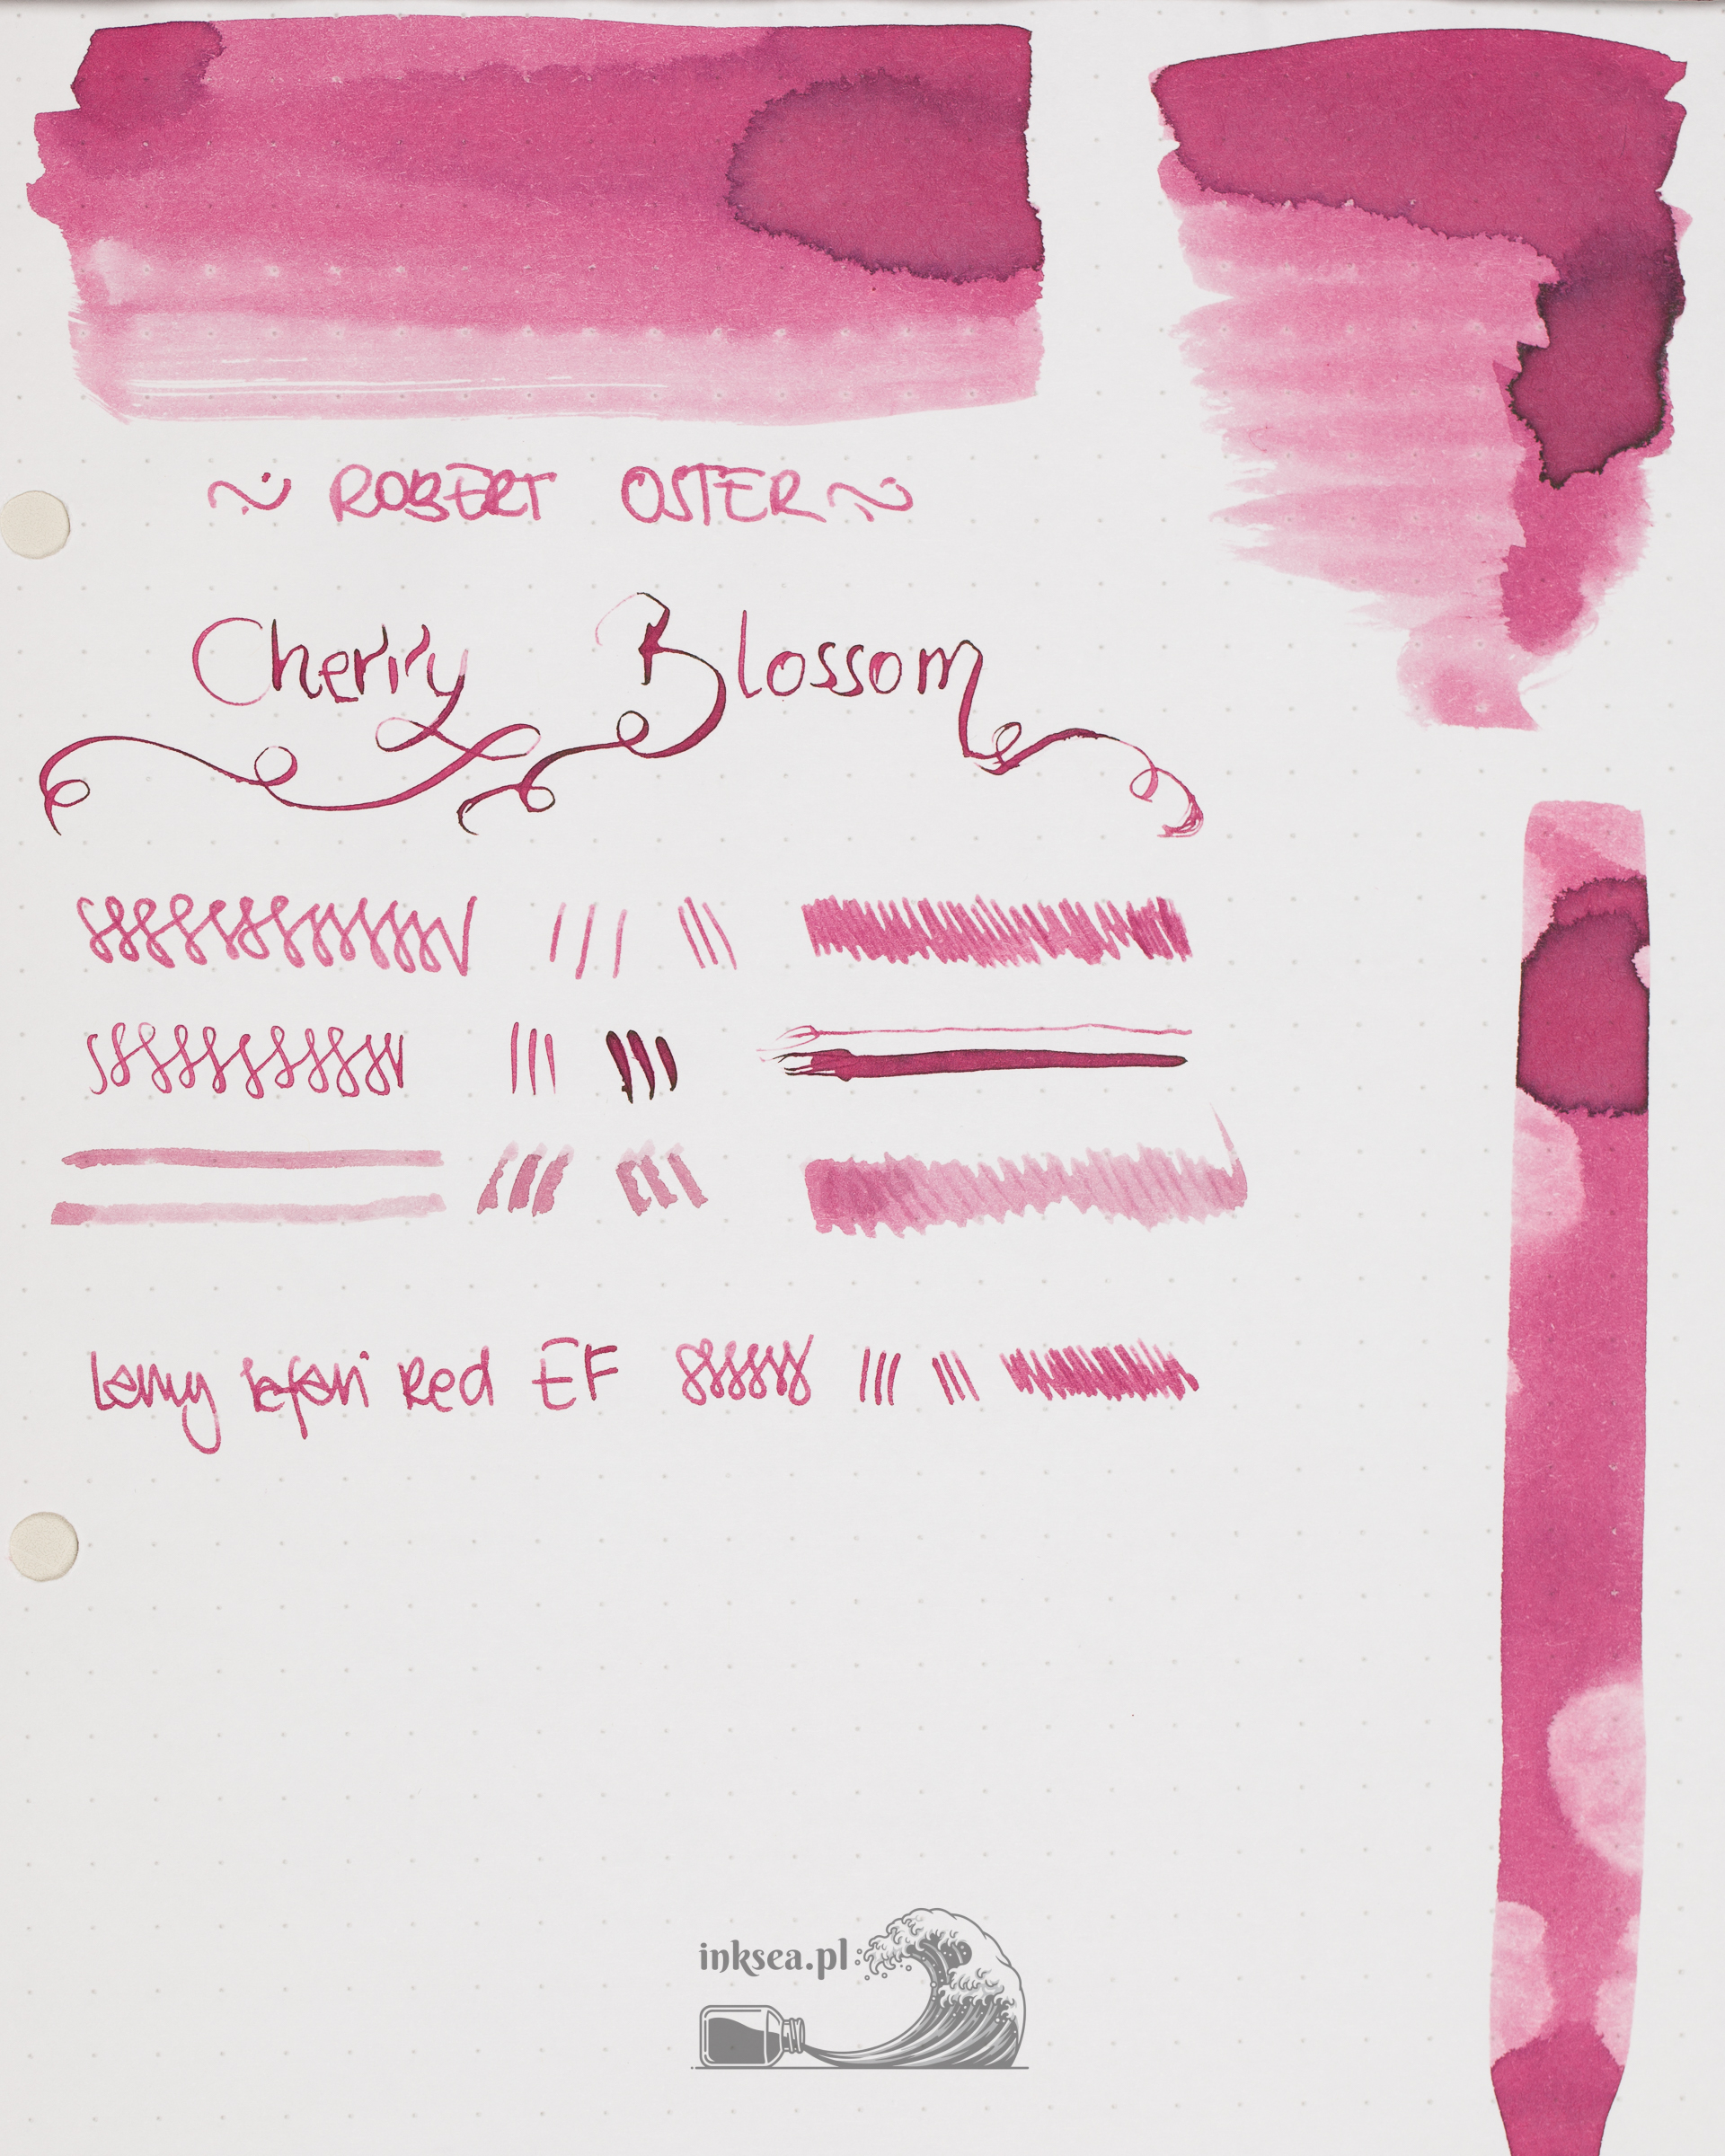 ~ ROBERT OSTER ~
Cherry Blossom
Lamy Safari Red EF
inksea.pl